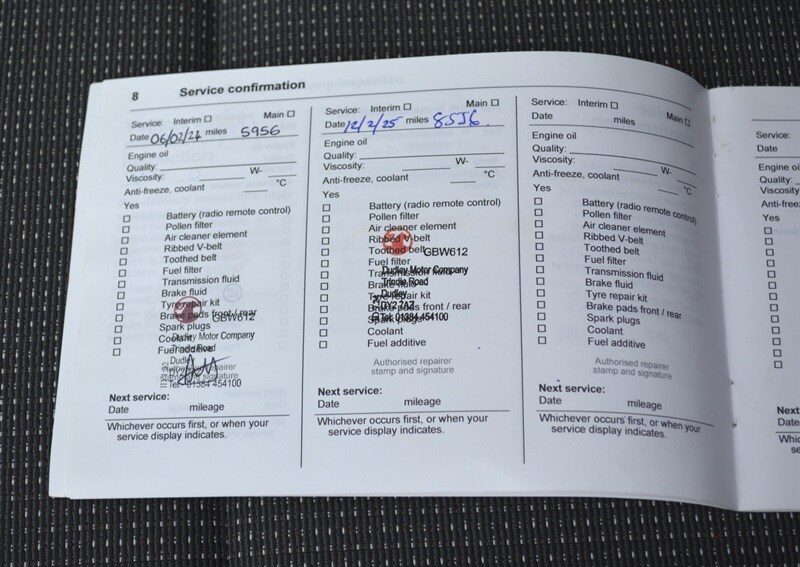 8 Service confirmation
Service: Interim ☐ Main ☐
Date 06/02/24 miles 5956
Engine oil
Quality:
Viscosity: W-
Anti-freeze, coolant °C
Yes
☐ Battery (radio remote control)
☐ Pollen filter
☐ Air cleaner element
☐ Ribbed V-belt
☐ Toothed belt
☐ Fuel filter
☐ Transmission fluid
☐ Brake fluid
☐ Tyre repair kit
☐ Brake pads front / rear
GBW612
☐ Spark plugs
Dudley Motor Company
☐ Coolant
Trindle Road
☐ Fuel additive
Dudley
Authorised repairer
stamp and signature
Tel: 01384 454100
Next service:
Date mileage
Whichever occurs first, or when your
service display indicates.
Service: Interim ☐ Main ☐
Date 12/2/25 miles 8556
Engine oil
Quality:
Viscosity: W-
Anti-freeze, coolant °C
Yes
☐ Battery (radio remote control)
☐ Pollen filter
☐ Air cleaner element
☐ Ribbed V-belt
☐ Toothed belt
GBW612
☐ Fuel filter
Dudley Motor Company
☐ Transmission fluid
Trindle Road
☐ Brake fluid
Dudley
☐ Tyre repair kit
DY2 7AZ
☐ Brake pads front / rear
Tel: 01384 454100
☐ Spark plugs
☐ Coolant
☐ Fuel additive
Authorised repairer
stamp and signature
Next service:
Date mileage
Whichever occurs first, or when your
service display indicates.
Service: Interim ☐ Main ☐
Date miles
Engine oil
Quality:
Viscosity: W-
Anti-freeze, coolant °C
Yes
☐ Battery (radio remote control)
☐ Pollen filter
☐ Air cleaner element
☐ Ribbed V-belt
☐ Toothed belt
☐ Fuel filter
☐ Transmission fluid
☐ Brake fluid
☐ Tyre repair kit
☐ Brake pads front / rear
☐ Spark plugs
☐ Coolant
☐ Fuel additive
Authorised repairer
stamp and signature
Next service:
Date mileage
Whichever occurs first, or when your
service display indicates.
Service:
Date
Engine oil
Quality:
Viscosity
Anti-freez
Yes
Next
Date